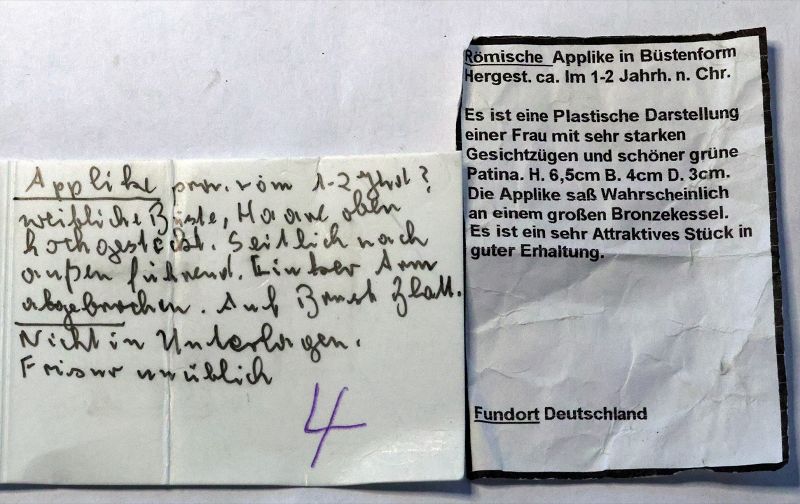 Applike prov. röm 1-2 Jhrdt?
weibliche Büste, Haare oben
hochgesteckt. Seitlich nach
außen führend. Linker Arm
abgebrochen. Auf Brust Blatt.
Nicht in Unterlagen.
Frisur unüblich
4
Römische Applike in Büstenform
Hergest. ca. Im 1-2 Jahrh. n. Chr.
Es ist eine Plastische Darstellung
einer Frau mit sehr starken
Gesichtzügen und schöner grüne
Patina. H. 6,5cm B. 4cm D. 3cm.
Die Applike saß Wahrscheinlich
an einem großen Bronzekessel.
Es ist ein sehr Attraktives Stück in
guter Erhaltung.
Fundort Deutschland